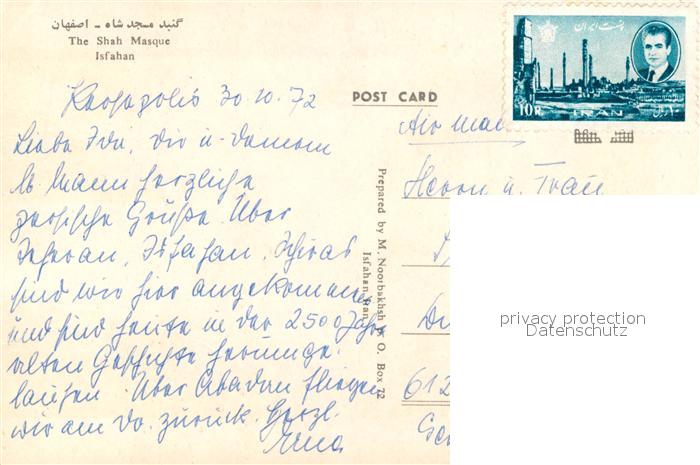 گنبد مسجد شاه - اصفهان
The Shah Masque
Isfahan
POST CARD
پست ایران
10R
IRAN
۱۰ ریال
Persepolis 30.10.72
Liebe Idi, Dir u. Deinem
lb. Mann herzliche
persische Grüße. Über
Teheran, Isfahan, Schiras
sind wir hier angekommen
und sind heute in der 2500 Jahre
alten Geschichte herumge-
laufen. Über Abadan fliegen
wir am Do. zurück. Herzl.
Erna
Prepared by M. Noorbakhsh P. O. Box 72
Isfahan, Iran
Air Mail
Herrn u. Frau
612
privacy protection
Datenschutz